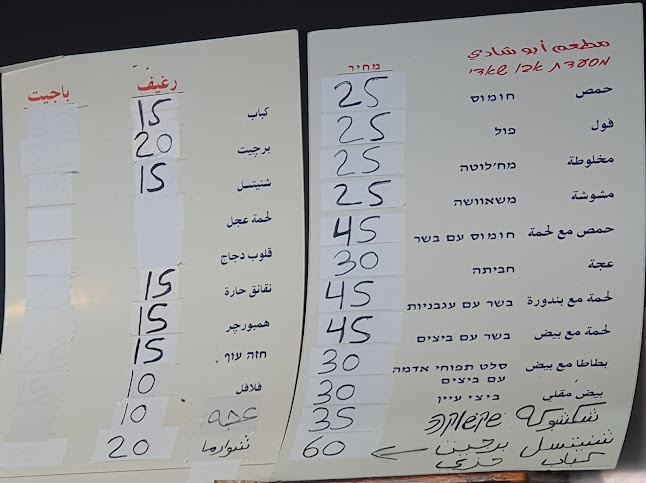 باجيت رغيف
كباب 15
برچيت 20
شنيتسل 15
لحمة عجل
قلوب دجاج
نقانق حارة 15
همبورچر 15
حزه عوف 15
فلافل 10
عجه 10
شوارما 20
مطعم أبو شادي
מסעדת אבו שאדי
מחיר
حمص חומוס 25
فول פול 25
مخلوطة מח'לוטה 25
مشوشة משאוושה 25
حمص مع لحمة חומוס עם בשר 45
عجة חביתה 30
لحمة مع بندورة בשר עם עגבניות 45
لحمة مع بيض בשר עם ביצים 45
بطاطا مع بيض סלט תפוחי אדמה 30
עם ביצים
بيض مقلي ביצי עיין 30
شكشوكة שקשוקה 35
شنيتسل برچيت ← 60
كباب حزي